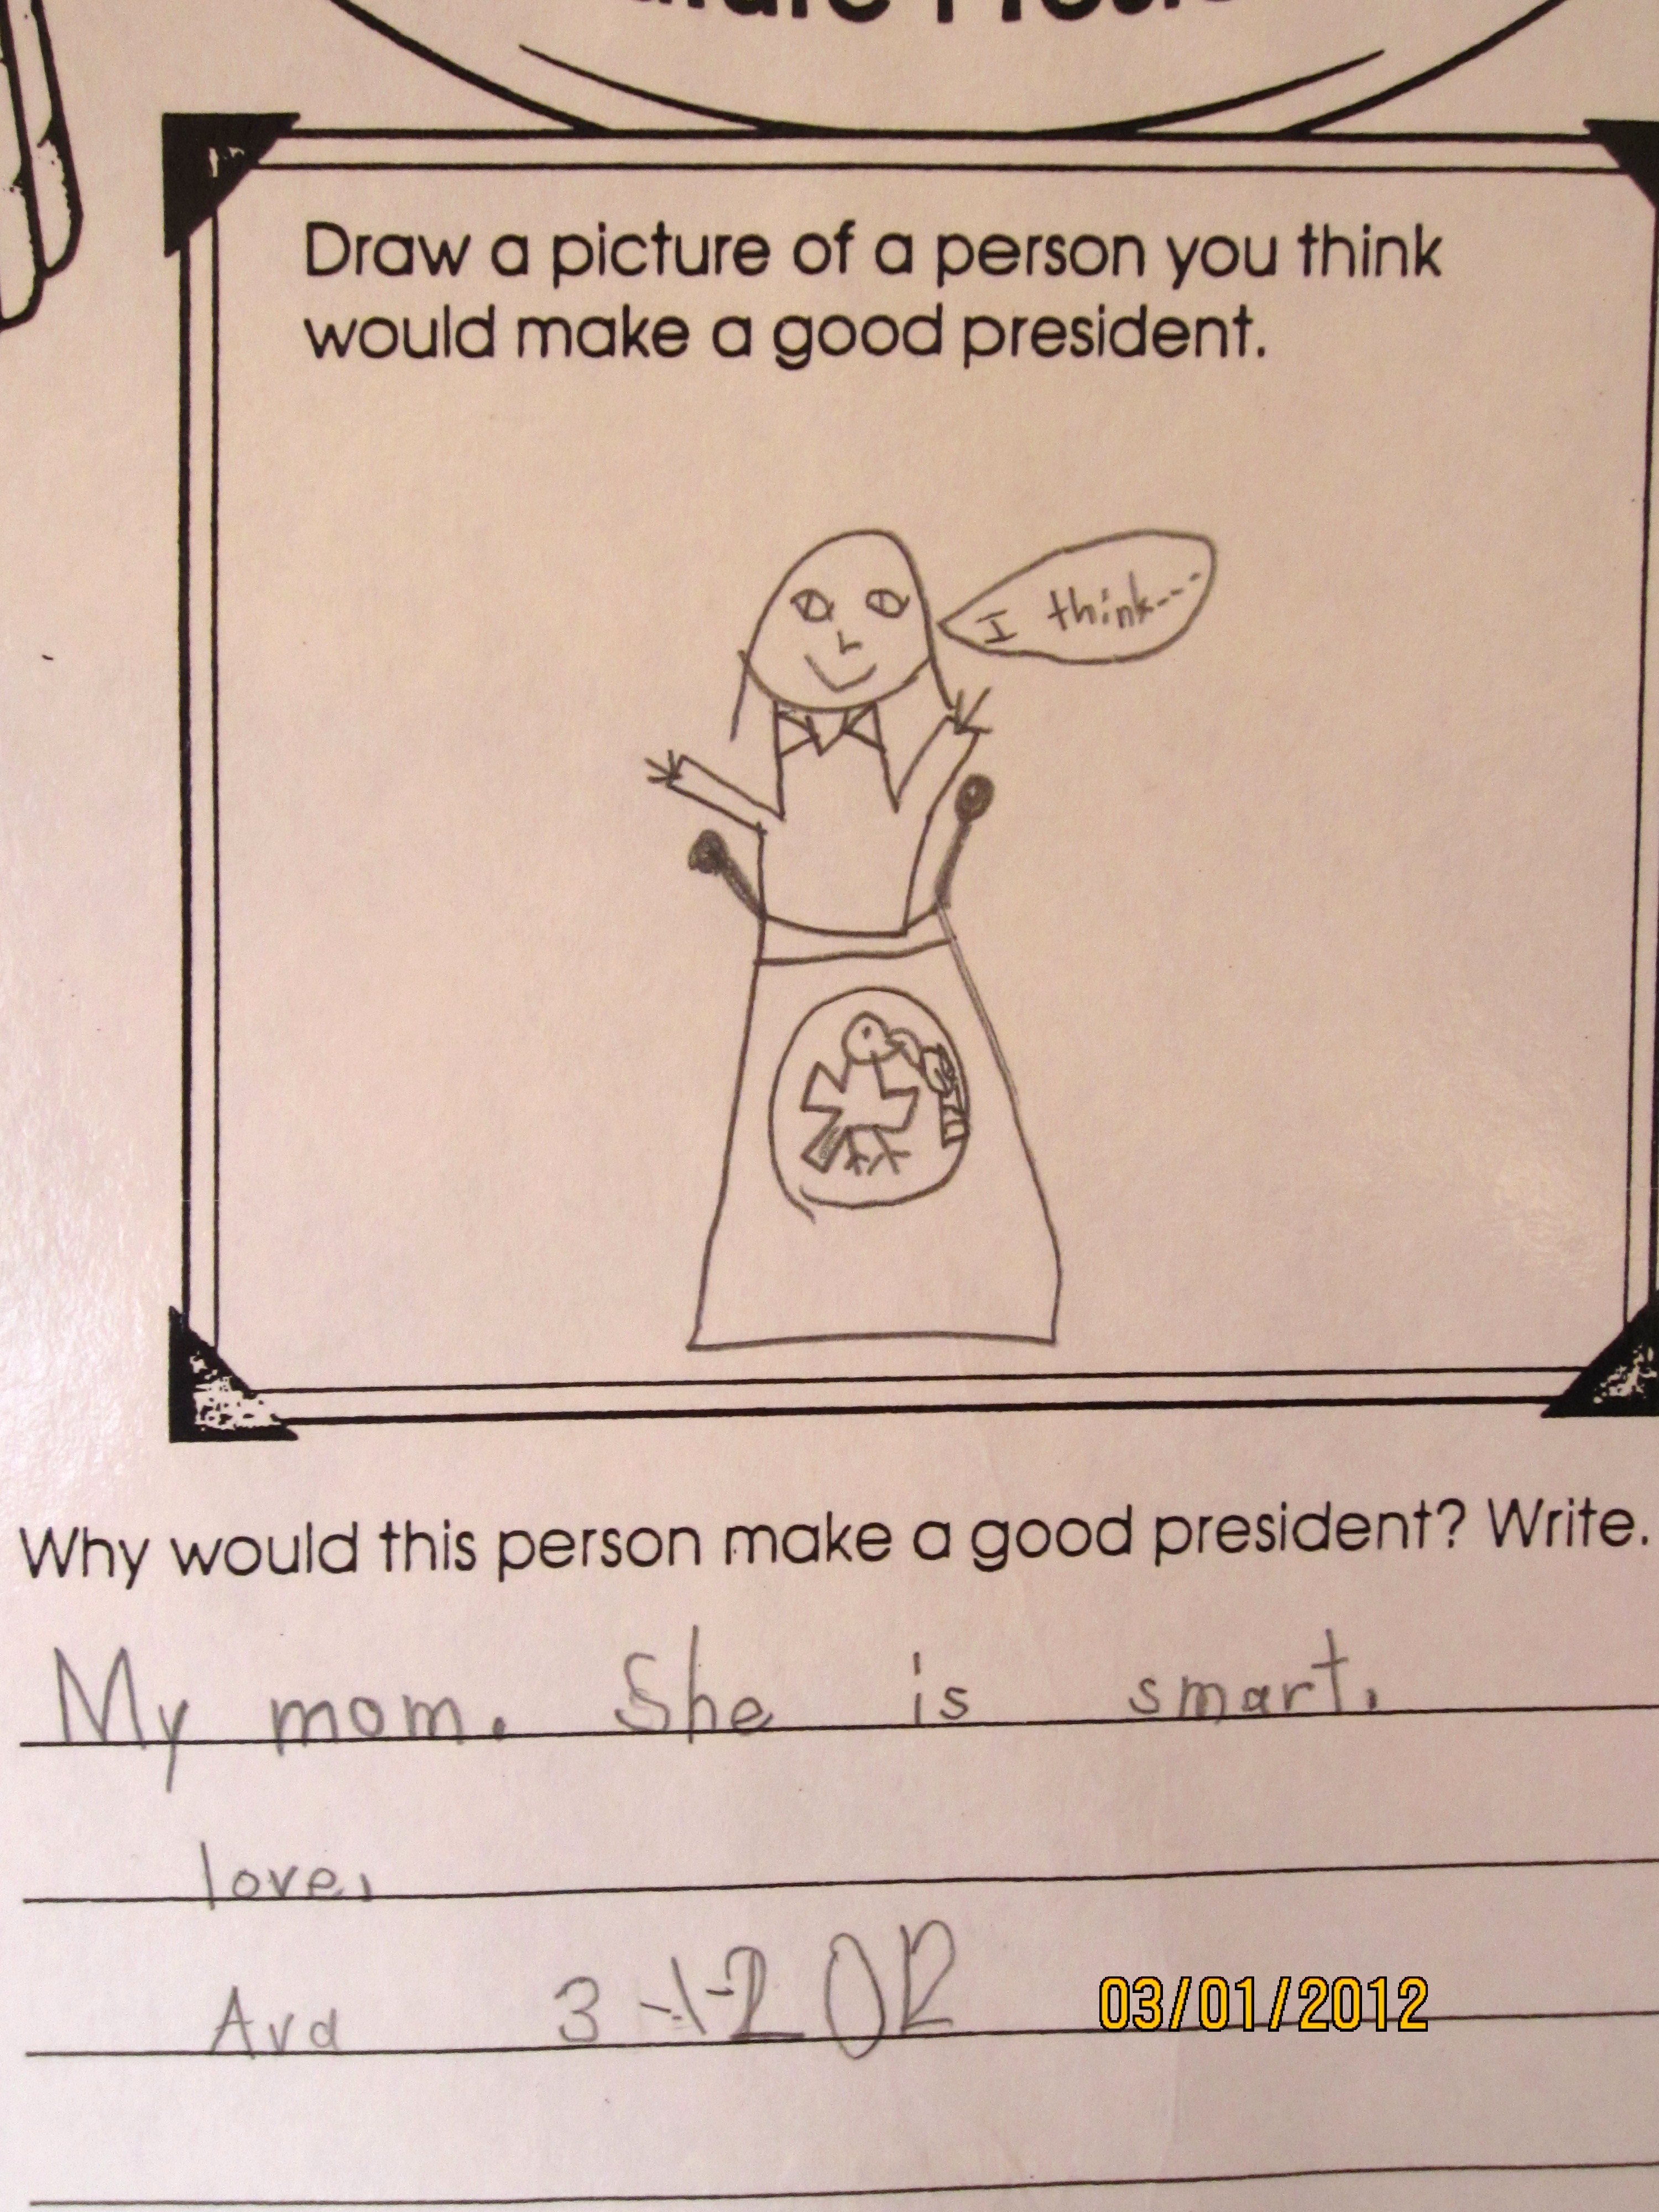 Draw a picture of a person you think
would make a good president.
I think---
Why would this person make a good president? Write.
My mom. She is smart.
love,
Ava 3-1-2012 03/01/2012